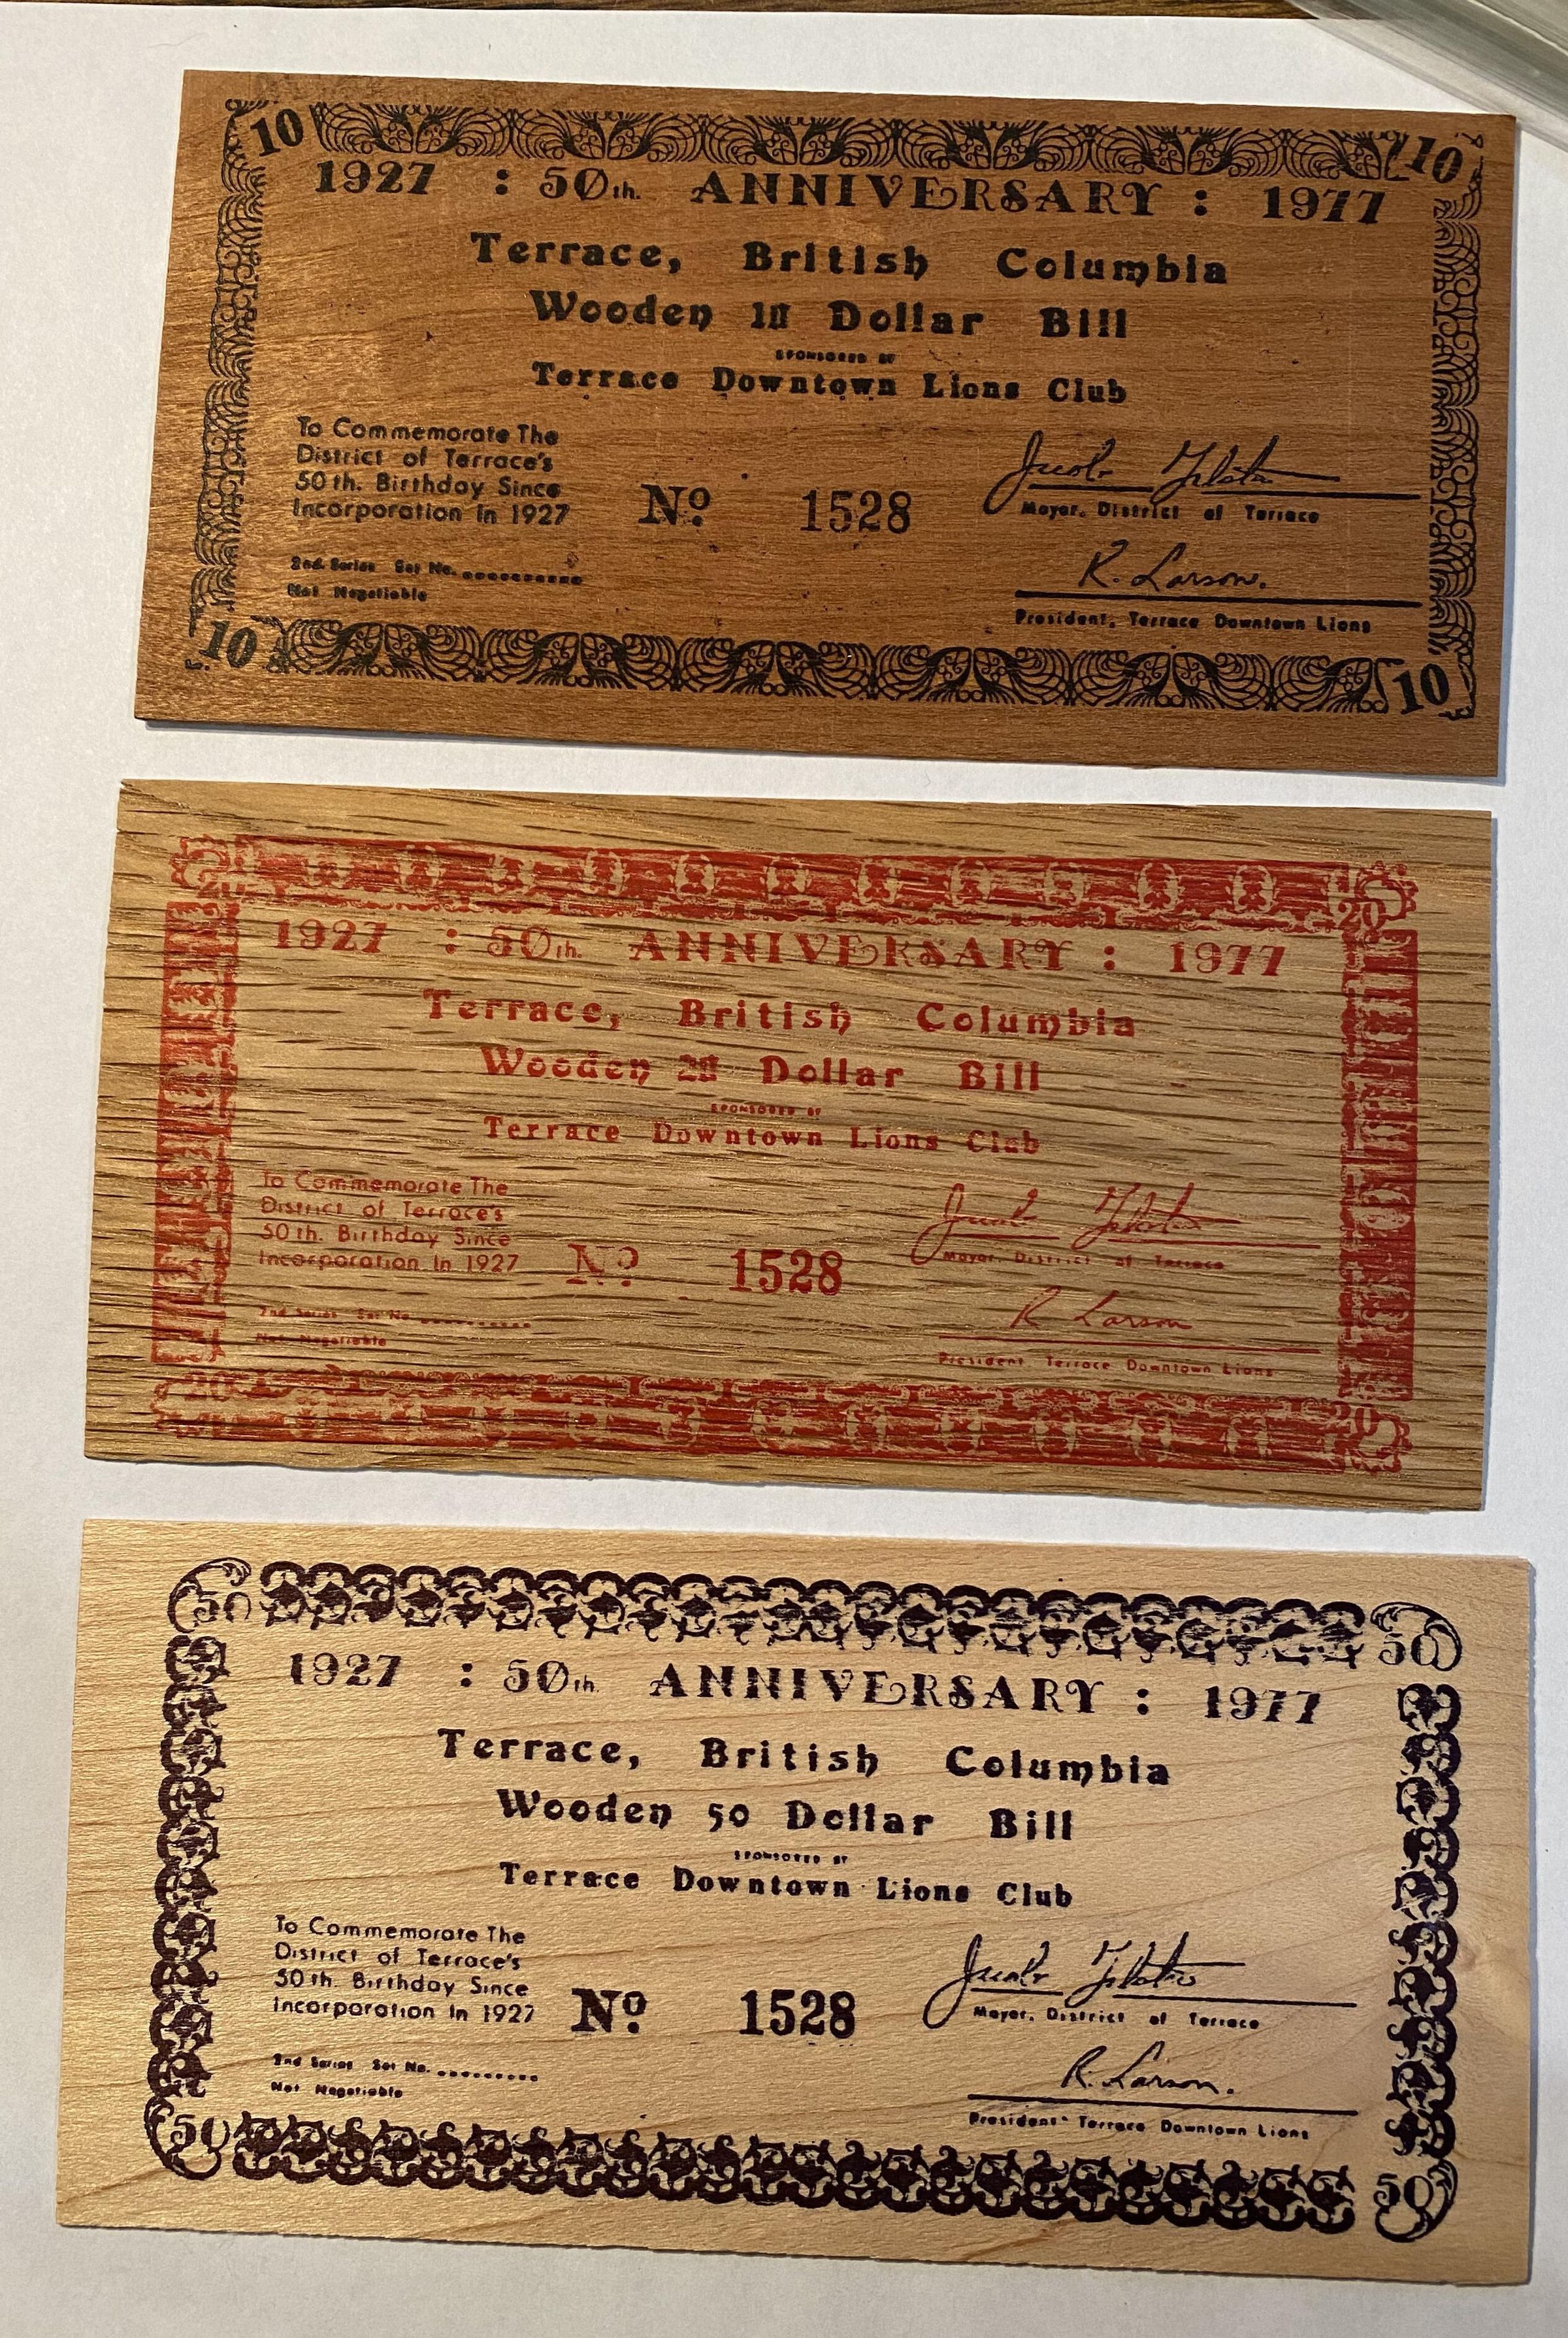 10 10
1927 : 50th. ANNIVERSARY : 1977
Terrace, British Columbia
Wooden 10 Dollar Bill
SPONSORED BY
Terrace Downtown Lions Club
To Commemorate The
District of Terrace's
50th. Birthday Since
Incorporation In 1927
No. 1528
Mayor, District of Terrace
2nd. Series Set No. ..........
Not Negotiable
R. Larson.
President, Terrace Downtown Lions
10 10
20 20
1927 : 50th. ANNIVERSARY : 1977
Terrace, British Columbia
Wooden 20 Dollar Bill
SPONSORED BY
Terrace Downtown Lions Club
To Commemorate The
District of Terrace's
50th. Birthday Since
Incorporation In 1927
No. 1528
Mayor, District of Terrace
2nd Series Set No. ..........
Not Negotiable
R Larson
President Terrace Downtown Lions
20 20
50 50
1927 : 50th ANNIVERSARY : 1977
Terrace, British Columbia
Wooden 50 Dollar Bill
SPONSORED BY
Terrace Downtown Lions Club
To Commemorate The
District of Terrace's
50th. Birthday Since
Incorporation In 1927
No. 1528
Mayor, District of Terrace
2nd Series Set No. ..........
Not Negotiable
R. Larson.
President Terrace Downtown Lions
50 50